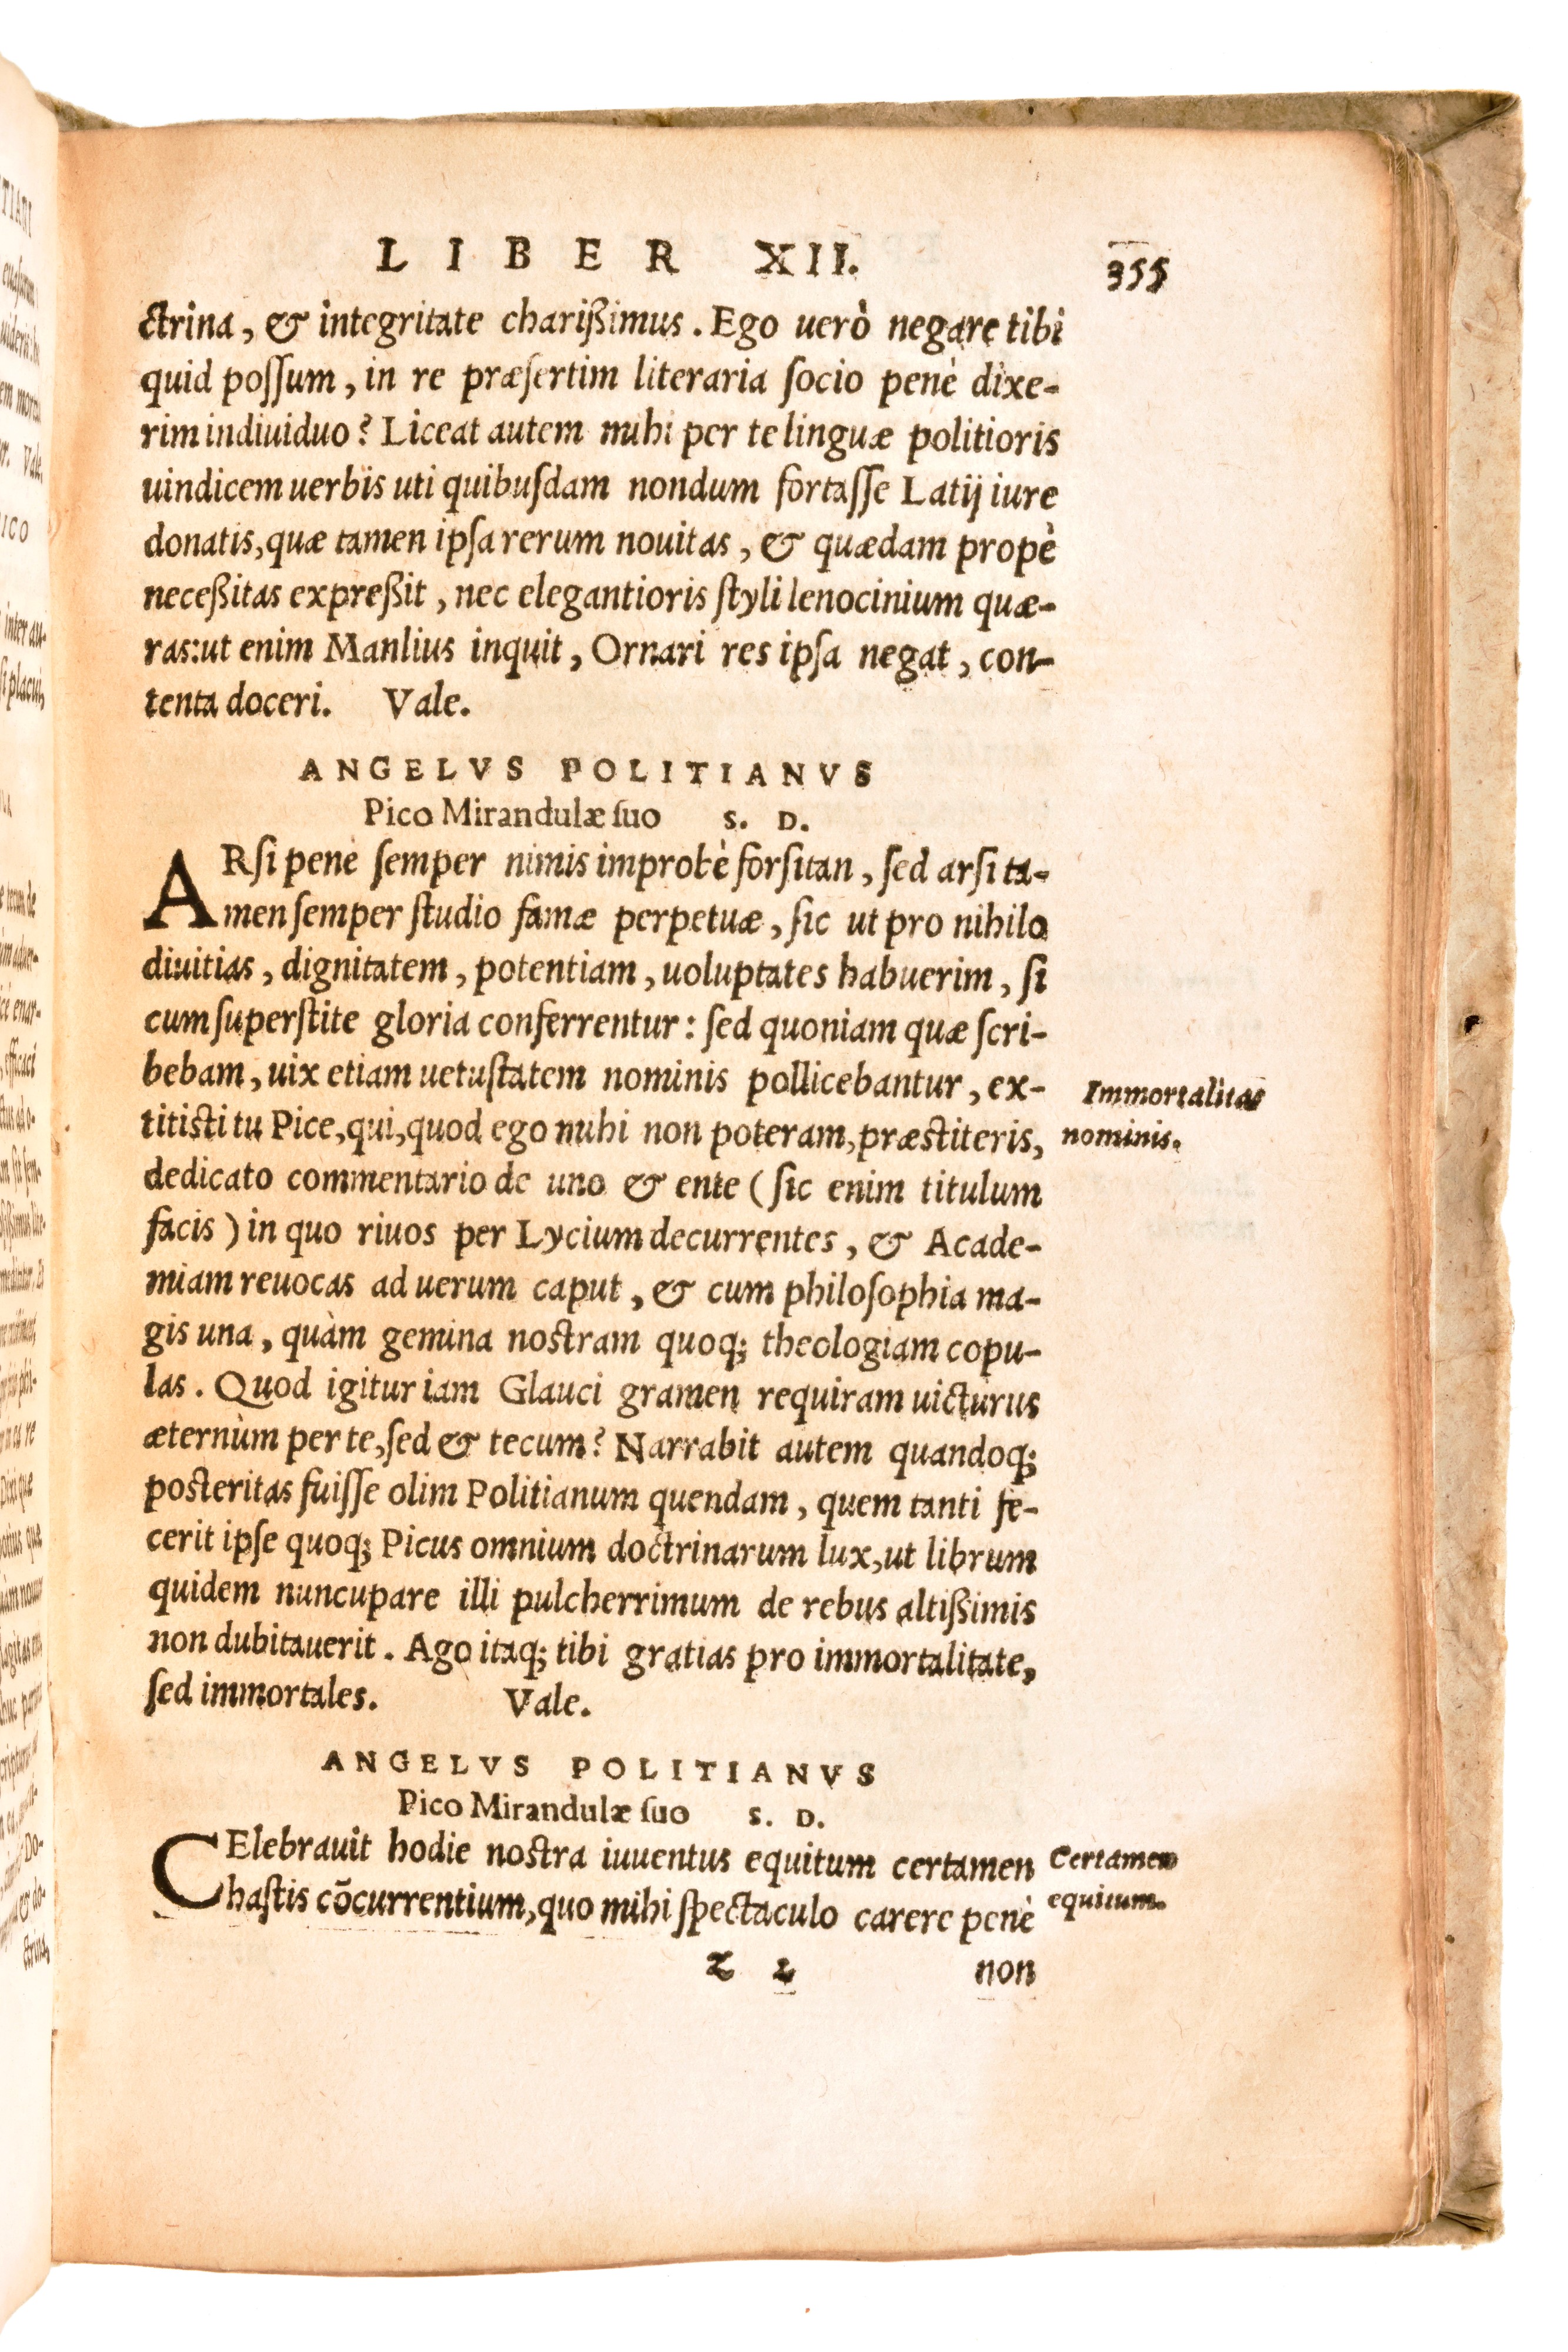 LIBER XII. 355
ctrina, & integritate charißimus. Ego uerò negare tibi
quid poſſum, in re præſertim literaria ſocio penè dixe-
rim indiuiduo? Liceat autem mihi per te linguæ politioris
uindicem uerbis uti quibuſdam nondum fortaſſe Latij iure
donatis, quæ tamen ipſa rerum nouitas, & quædam propè
neceßitas expreßit, nec elegantioris ſtyli lenocinium quæ-
ras: ut enim Manlius inquit, Ornari res ipſa negat, con-
tenta doceri. Vale.
ANGELVS POLITIANVS
Pico Mirandulæ ſuo S. D.
ARſi penè ſemper nimis improbè forſitan, ſed arſi ta-
men ſemper ſtudio famæ perpetuæ, ſic ut pro nihilo
diuitias, dignitatem, potentiam, uoluptates habuerim, ſi
cum ſuperſtite gloria conferrentur: ſed quoniam quæ ſcri-
bebam, uix etiam uetuſtatem nominis pollicebantur, ex-
titisti tu Pice, qui, quod ego mihi non poteram, præstiteris,
Immortalitas
nominis.
dedicato commentario de uno & ente (ſic enim titulum
facis) in quo riuos per Lycium decurrentes, & Acade-
miam reuocas ad uerum caput, & cum philoſophia ma-
gis una, quàm gemina nostram quoq; theologiam copu-
las. Quod igitur iam Glauci gramen requiram uicturus
æternùm per te, ſed & tecum? Narrabit autem quandoq;
posteritas fuiſſe olim Politianum quendam, quem tanti fe-
cerit ipſe quoq; Picus omnium doctrinarum lux, ut librum
quidem nuncupare illi pulcherrimum de rebus altißimis
non dubitauerit. Ago itaq; tibi gratias pro immortalitate,
ſed immortales. Vale.
ANGELVS POLITIANVS
Pico Mirandulæ ſuo S. D.
CElebrauit hodie nostra iuuentus equitum certamen
haſtis cōcurrentium, quo mihi ſpectaculo carere penè
Certamen
equitum.
z 2 non